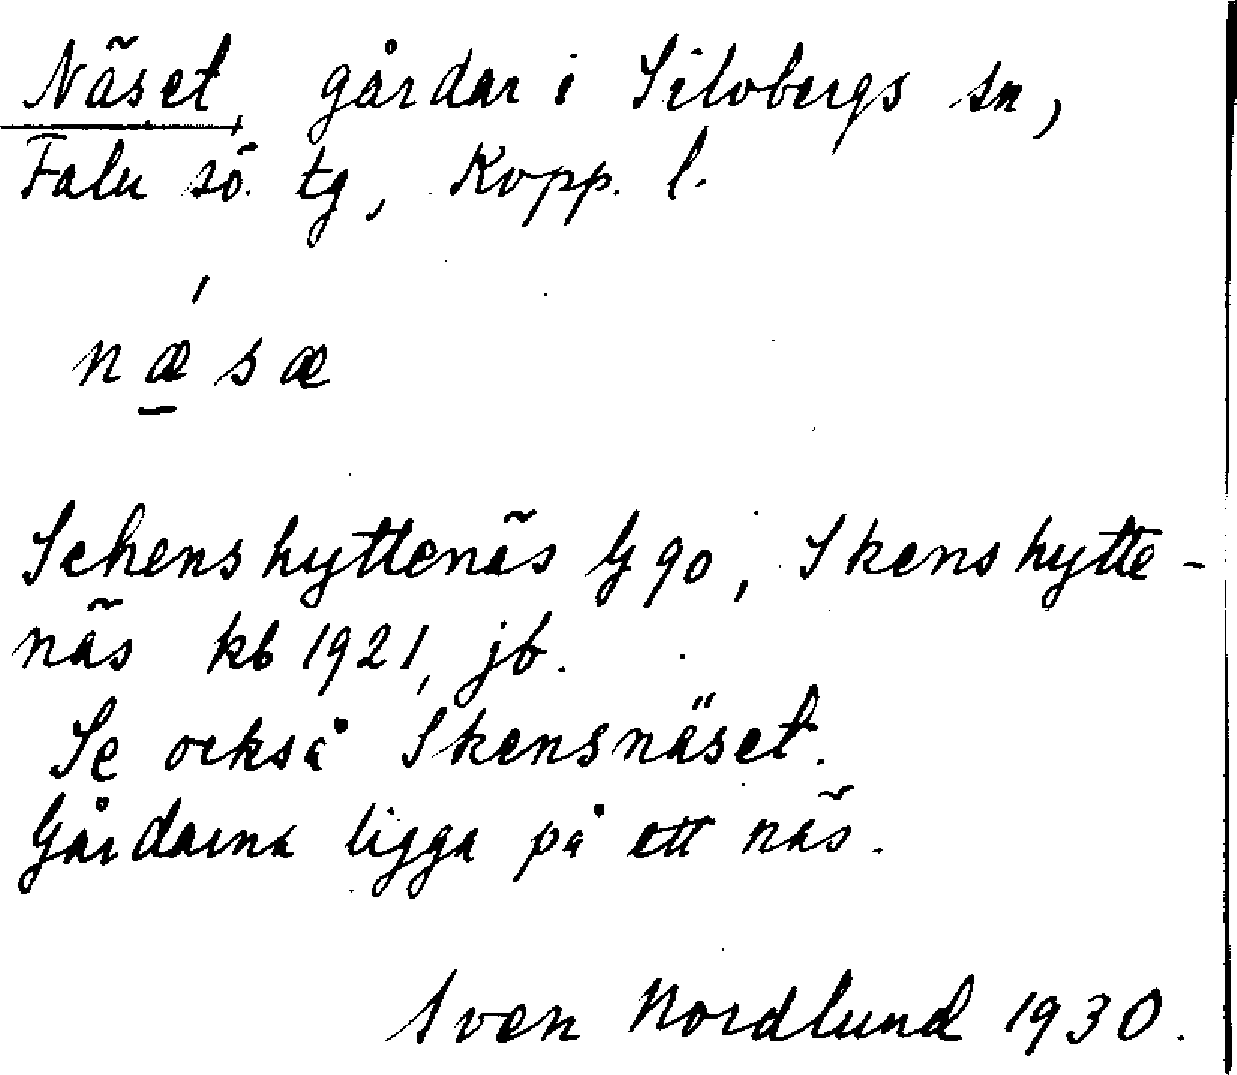 Näset, gårdar i Silvbergs sn,
Falu sö. tg, Kopp. l.
næ´sæ
Schenshyttenäs G 90, Skenshytte-
näs kb 1921, jb.
Se också Skensnäset.
Gårdarna ligga på ett näs.
Sven Nordlund 1930.